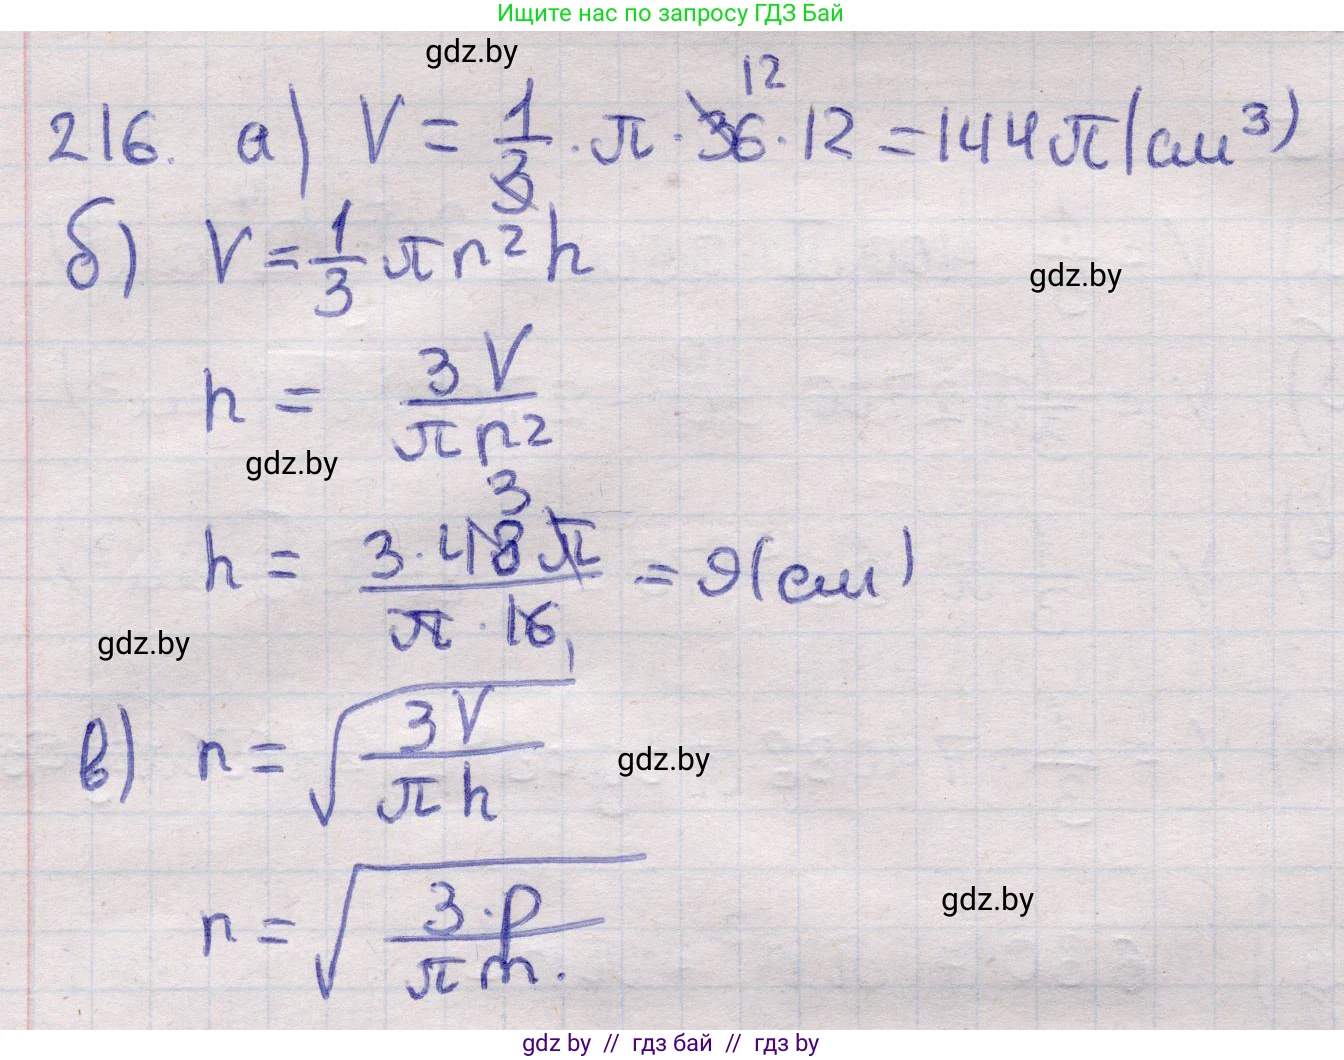 Ищите нас по запросу ГДЗ Бай
gdz.by
216. а) V = 1/3 · π · 36 · 12 = 144π (см³)
12
б) V = 1/3 πr²h
gdz.by
h = 3V/πr²
gdz.by
3
h = 3·48π/π·16 = 9(см)
1
gdz.by
в) r = √(3V/πh)
gdz.by
r = √(3·p/πm.)
gdz.by
gdz by // гдз бай // гдз by